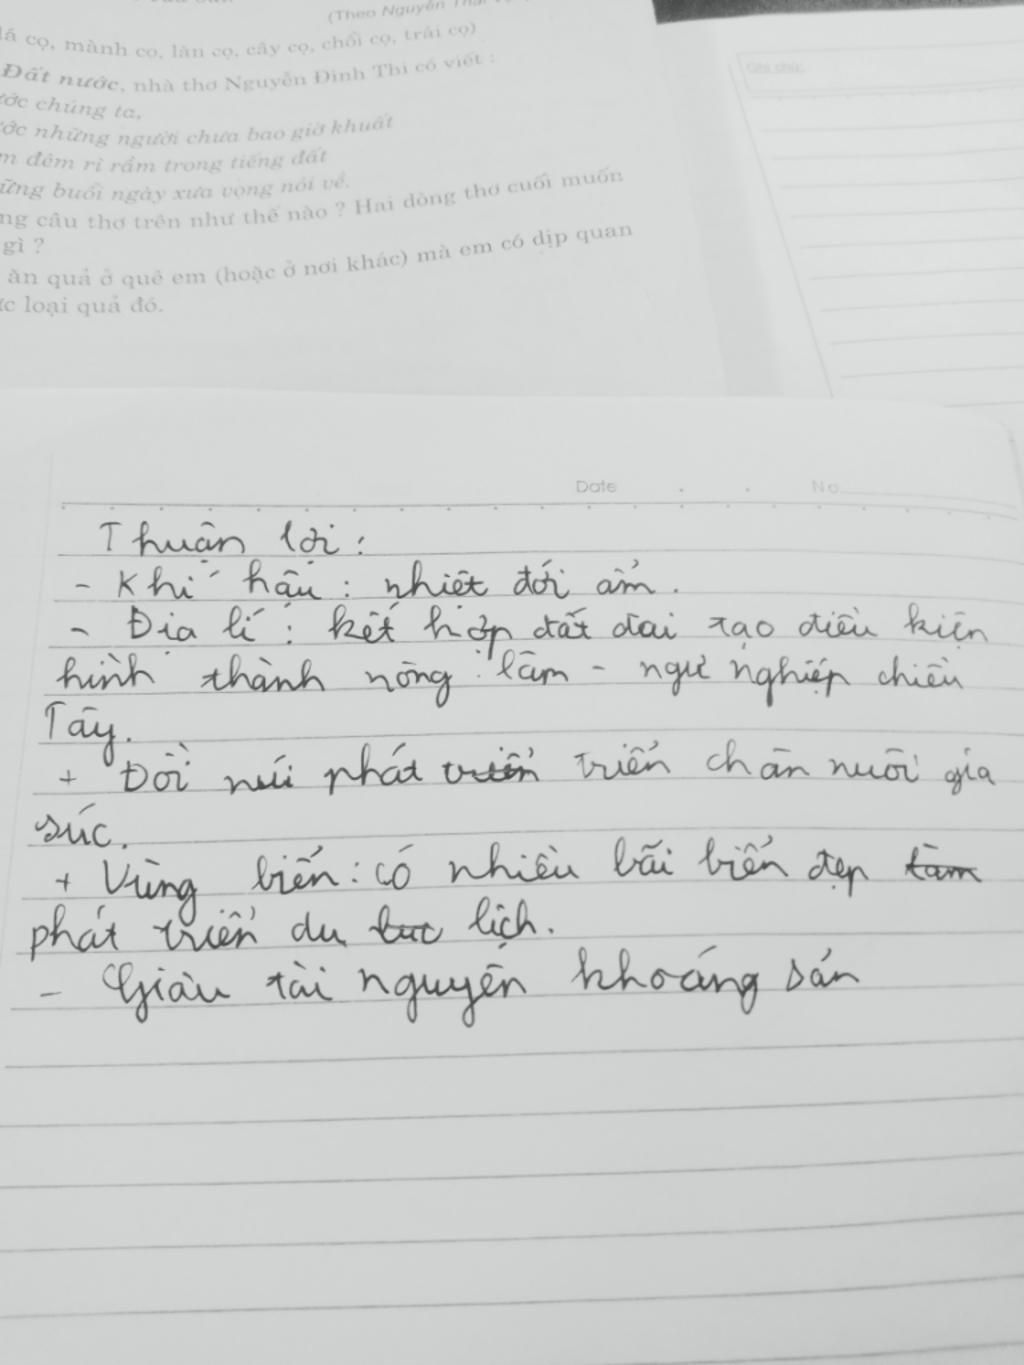 (Theo Nguyễn Thái
lá cọ, mành cọ, làn cọ, cây cọ, chổi cọ, trái cọ)
Đất nước, nhà thơ Nguyễn Đình Thi có viết :
ước chúng ta,
ước những người chưa bao giờ khuất
m đêm rì rầm trong tiếng đất
ững buổi ngày xưa vọng nói về.
ng câu thơ trên như thế nào ? Hai dòng thơ cuối muốn
gì ?
ăn quả ở quê em (hoặc ở nơi khác) mà em có dịp quan
ức loại quả đó.
Ghi chú:
Date . . No
Thuận lợi :
- Khí hậu : nhiệt đới ẩm.
- Địa lí : kết hợp đất đai tạo điều kiện
hình thành nông - lâm - ngư nghiệp chiều
Tây.
+ Đồi núi phát triển triển chăn nuôi gia
súc.
+ Vùng biển : có nhiều bãi biển đẹp làm
phát triển du lịch.
- Giàu tài nguyên khoáng sản